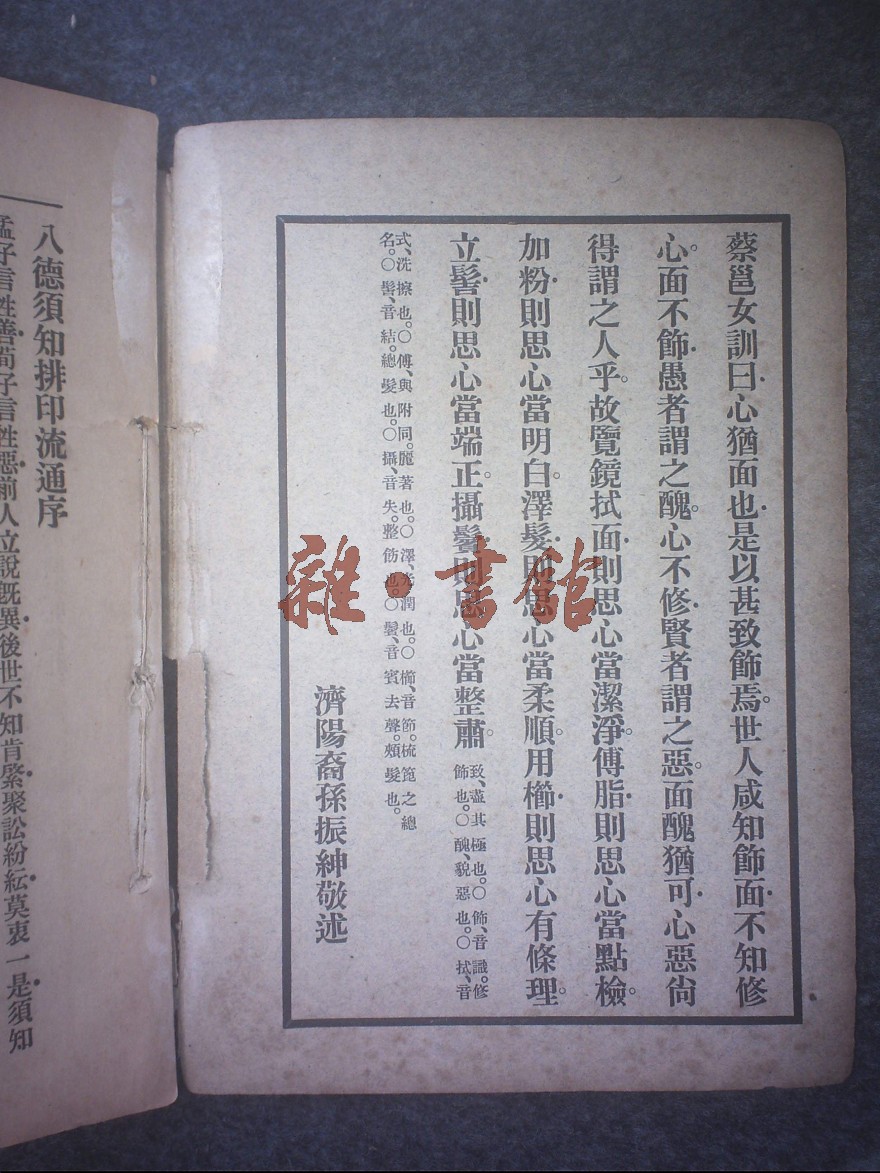 蔡邕女訓曰心猶面也是以甚致飾焉。世人咸知飾面不知修
心。面不飾愚者謂之醜。心不修賢者謂之惡。面醜猶可心惡尙
得謂之人乎。故覽鏡拭面則思心當潔淨。傅脂則思心當點檢。
加粉則思心當明白。澤髮則思心當柔順。用櫛則思心有條理。
立髻則思心當端正。攝鬢則思心當整肅。
致、盡其極也。〇飾、音識。修
飾也。〇醜、貌惡也。〇拭、音
式、洗擦也。〇傅、與附同。麗著也。〇澤、光潤也。〇櫛、音節。梳篦之總
名。〇髻、音結。總髮也。〇攝、音失。整飭也。〇鬢、音賓去聲。頰髮也。
濟陽裔孫振紳敬述
八德須知排印流通序
孟子言性善荀子言性惡前人立說旣異後世不知肯綮聚訟紛紜莫衷一是須知
雜·書館